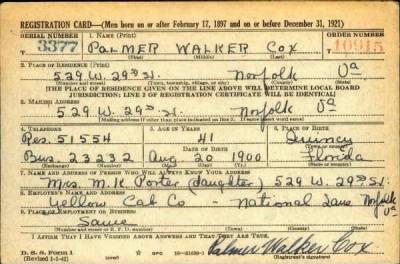 REGISTRATION CARD—(Men born on or after February 17, 1897 and on or before December 31, 1921)
SERIAL NUMBER 1. NAME (Print) ORDER NUMBER
3377 PALMER WALKER COX 10915
(First) (Middle) (Last)
2. PLACE OF RESIDENCE (Print)
529 W. 29th St. Norfolk Va
(Number and street) (Town, township, village, or city) (County) (State)
[THE PLACE OF RESIDENCE GIVEN ON THE LINE ABOVE WILL DETERMINE LOCAL BOARD
JURISDICTION; LINE 2 OF REGISTRATION CERTIFICATE WILL BE IDENTICAL]
3. MAILING ADDRESS
529 W. 29th St. Norfolk Va
[Mailing address if other than place indicated on line 2. If same insert word same]
4. TELEPHONE 5. AGE IN YEARS 6. PLACE OF BIRTH
Res. 51554 41 Quincy
DATE OF BIRTH (Town or county)
Bus. 23232 Aug 20 1900 Florida
(Exchange) (Number) (Mo.) (Day) (Yr.) (State or country)
7. NAME AND ADDRESS OF PERSON WHO WILL ALWAYS KNOW YOUR ADDRESS
Mrs. M. K. Porter (daughter) 529 W. 29th St.
8. EMPLOYER'S NAME AND ADDRESS Norfolk
Yellow Cab Co - National Va
9. PLACE OF EMPLOYMENT OR BUSINESS
Same
(Number and street or R. F. D. number) (Town) (County) (State)
I AFFIRM THAT I HAVE VERIFIED ABOVE ANSWERS AND THAT THEY ARE TRUE.
D. S. S. Form 1 Palmer Walker Cox
(Revised 1-2-42) GPO (Registrant's signature)